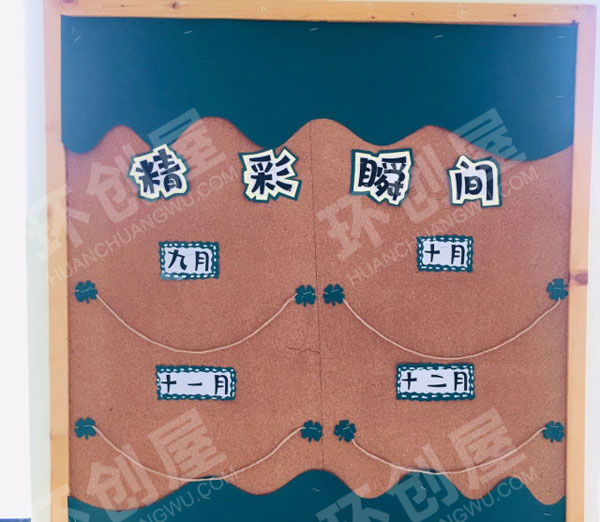 精彩瞬间
九月
十月
十一月
十二月
环创屋
HUANCHUANGWU.COM
环创屋
HUANCHUANGWU.COM
环创屋
HUANCHUANGWU.COM
环创屋
HUANCHUANGWU.COM